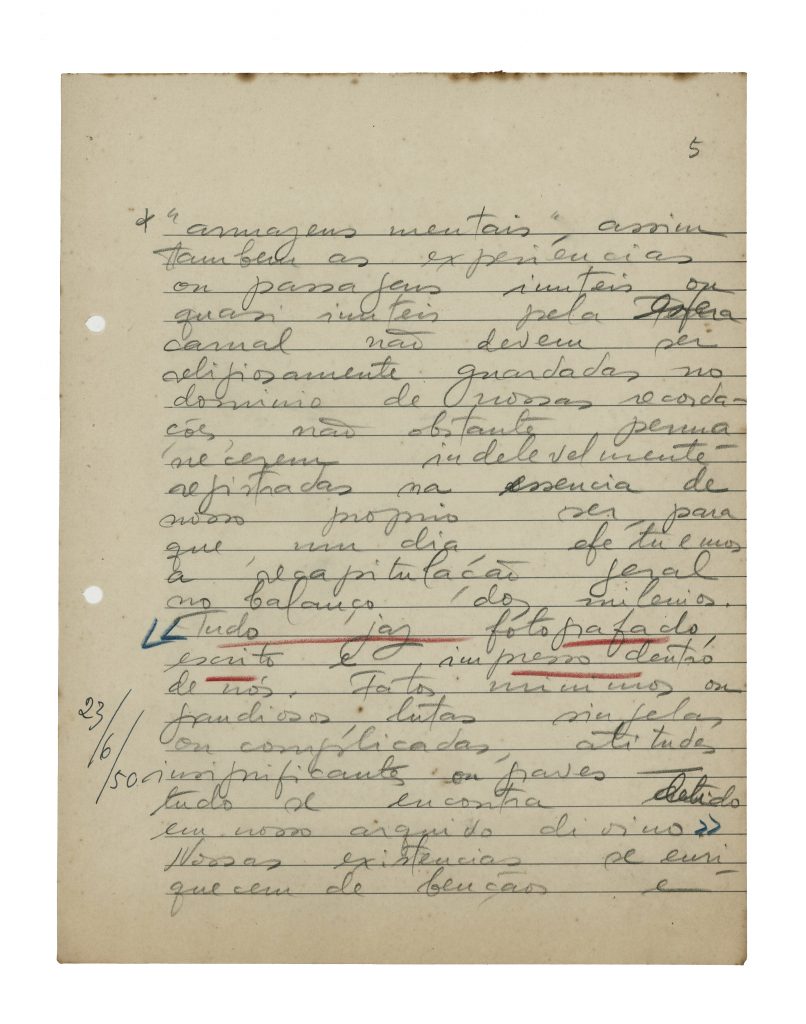 5
* "armazens mentais", assim
tambem as experiências
ou passagens inuteis ou
quasi inuteis pela Esfera
carnal não devem ser
religiosamente guardadas no
dominio de nossas recorda-
ções, não obstante perma-
necerem indelevelmente
registradas na essencia de
nosso proprio ser, para
que um dia efetuemos
a recapitulação geral
no balanço dos milenios.
« Tudo jaz fotografado,
escrito e impresso dentro
de nós. Fatos minimos ou
grandiosos, lutas singelas
ou complicadas, atitudes
insignificantes ou graves —
tudo se encontra detido
em nosso arquivo divino »
Nossas existencias se enri-
quecem de bençãos e
23/6/50